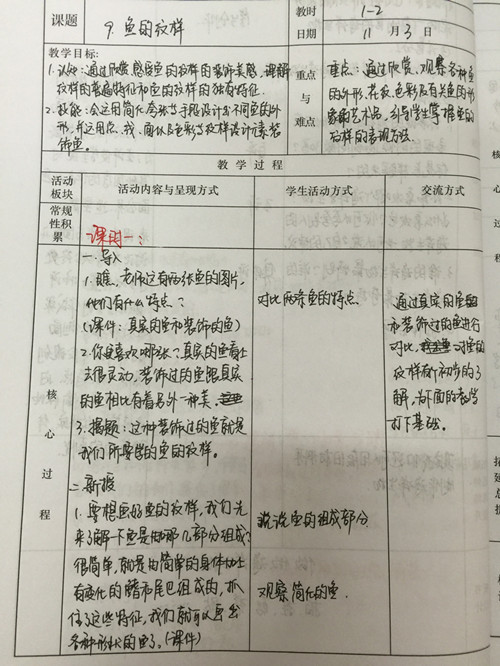 课题
9. 鱼的纹样
教时
1-2
日期
11月3日
教学目标:
1. 认知:通过欣赏感受鱼的纹样的装饰美感,理解
纹样的普遍特征和鱼的纹样的独有特征.
2. 技能:会运用简化夸张等手段设计出不同鱼的外
形,并运用点、线、面以及色彩等纹样设计元素装
饰鱼。
重点
与
难点
重点:通过欣赏、观察各种鱼
的外形,花纹,色彩及有关鱼的形
象的艺术品,引导学生掌握鱼的
纹样的表现方法.
教学过程
活动
板块
活动内容与呈现方式
学生活动方式
交流方式
常规
性积
累
课时一:
核
心
过
程
一、导入
1. 瞧,老师这有两张鱼的图片,
他们有什么特点?
(课件:真实的鱼和装饰的鱼)
2. 你更喜欢哪张?真实的鱼看上
去很灵动,装饰过的鱼跟真实
的鱼相比有着另外一种美.
3. 揭题:这种装饰过的鱼就是
我们所要学的鱼的纹样。
二、新授
1. 要想画好鱼的纹样,我们先
来了解一下鱼是由哪几部分组成?
很简单,就是由简单的身体加上
有变化的鳍和尾巴组成的,抓
住了这些特征,我们就可以画出
各种形状的鱼了。(课件)
对比两条鱼的特点.
说说鱼的组成部分
观察简化的鱼.
通过真实的鱼
和装饰过的鱼进行
对比,对鱼的
纹样有个初步的了
解,为后面的教学
打下基础。
核
心
过
程